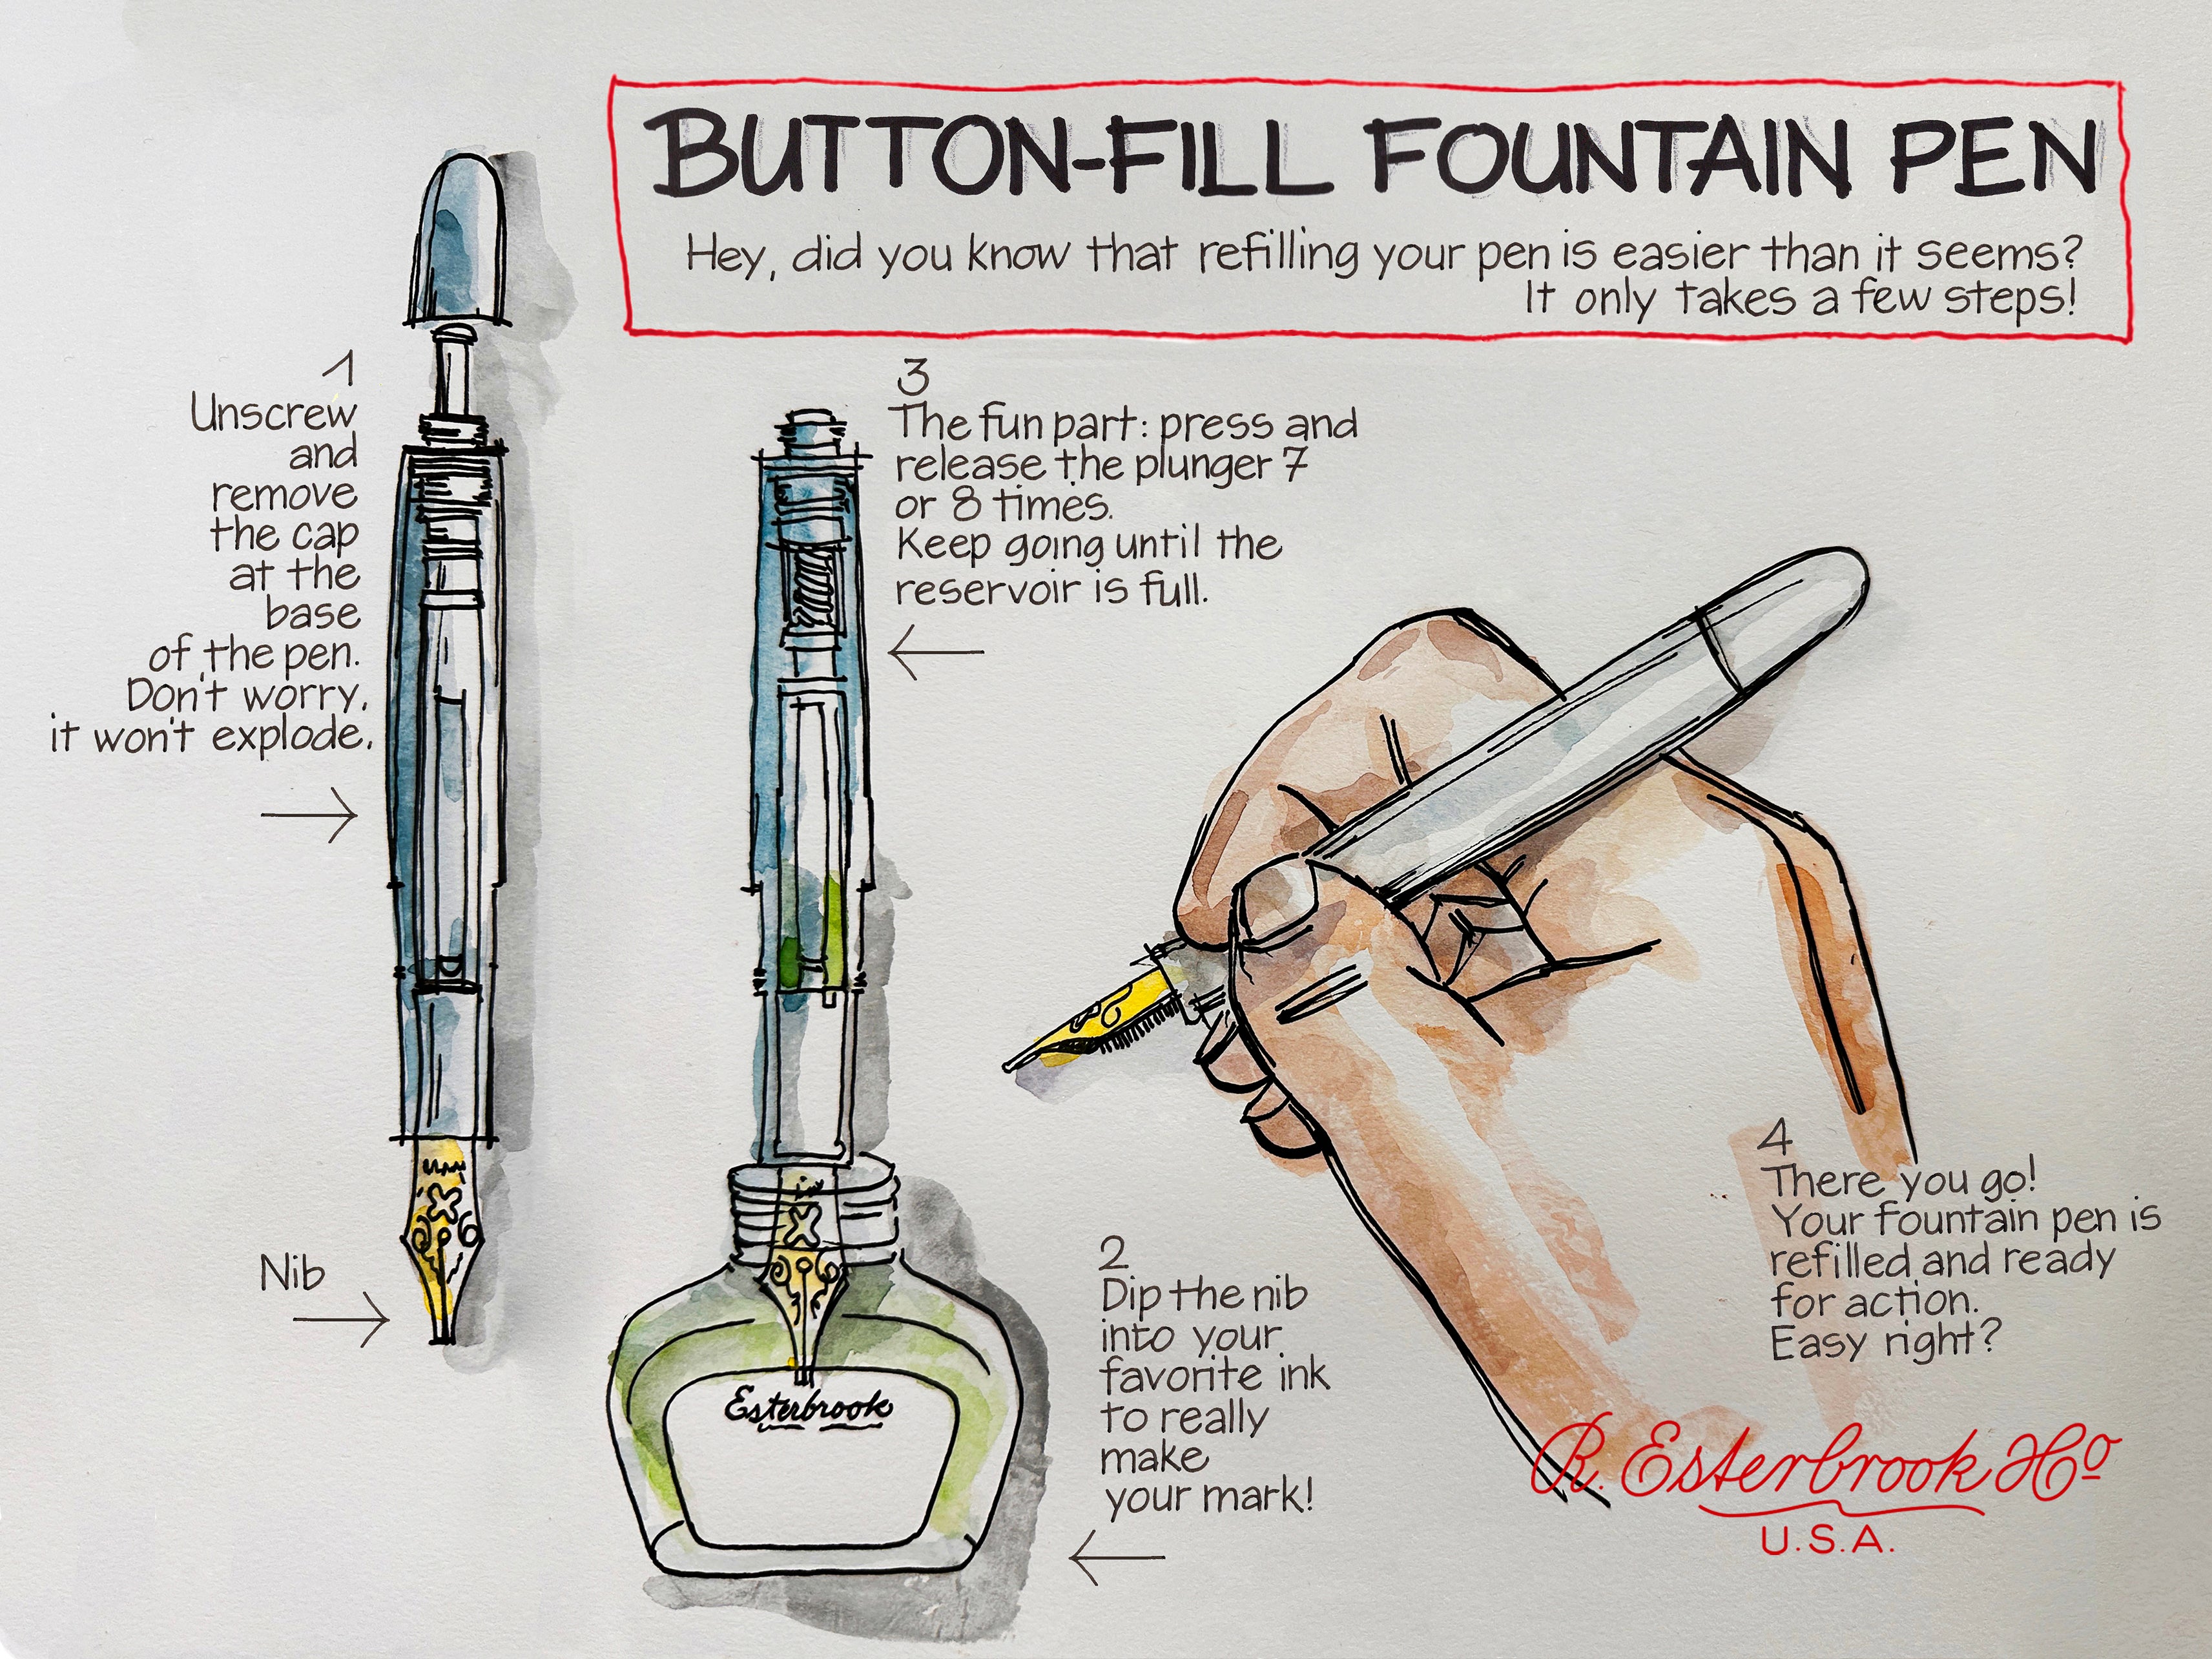 BUTTON-FILL FOUNTAIN PEN
Hey, did you know that refilling your pen is easier than it seems?
It only takes a few steps!
1
Unscrew
and
remove
the cap
at the
base
of the pen.
Don't worry,
it won't explode.
Nib
3
The fun part: press and
release the plunger 7
or 8 times.
Keep going until the
reservoir is full.
2
Dip the nib
into your
favorite ink
to really
make
your mark!
Esterbrook
4
There you go!
Your fountain pen is
refilled and ready
for action.
Easy right?
R. Esterbrook &Co
U.S.A.